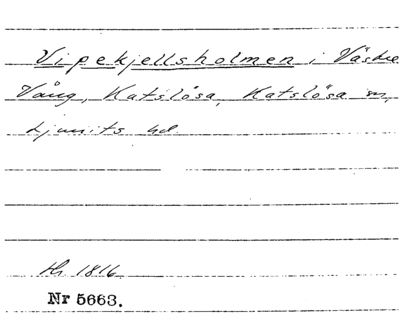 Vipekjellsholmen i Västre
Vång, Katslösa, Katslösa sn,
Ljunits hd
Hs 1816
Nr 5663.